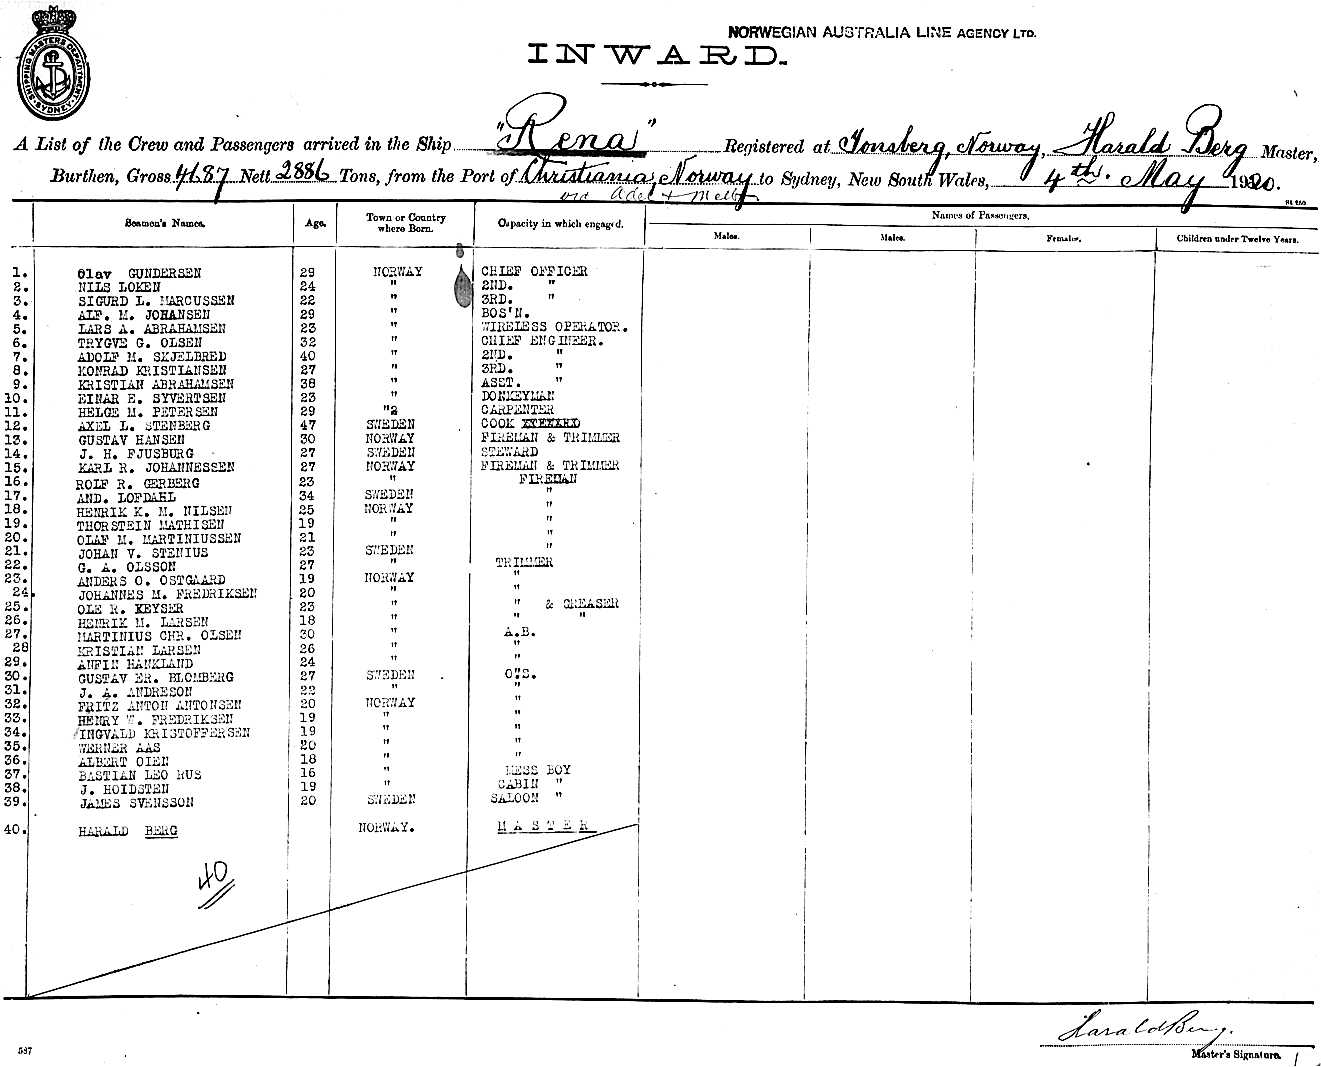 NORWEGIAN AUSTRALIA LINE AGENCY LTD.
SHIPPING MASTERS DEPARTMENT SYDNEY
INWARD.
A List of the Crew and Passengers arrived in the Ship "Rena" Registered at Tonsberg, Norway, Harald Berg Master,
Burthen, Gross 4687 Nett 2886 Tons, from the Port of Christiania, Norway to Sydney, New South Wales, 4th. May 1920.
via Adel + Melb
Seamen's Names. Age. Town or Country where Born. Capacity in which engaged. Names of Passengers.
Males. Males. Females. Children under Twelve Years.
1. Olav GUNDERSEN 29 NORWAY CHIEF OFFICER
2. NILS LOKEN 24 " 2ND. "
3. SIGURD L. MARCUSSEN 22 " 3RD. "
4. ALF. M. JOHANSEN 29 " BOS'N.
5. LARS A. ABRAHAMSEN 23 " WIRELESS OPERATOR.
6. TRYGVE G. OLSEN 32 " CHIEF ENGINEER.
7. ADOLF M. SKJELBRED 40 " 2ND. "
8. KONRAD KRISTIANSEN 27 " 3RD. "
9. KRISTIAN ABRAHAMSEN 38 " ASST. "
10. EINAR E. SYVERTSEN 23 " DONKEYMAN
11. HELGE M. PETERSEN 29 "2 CARPENTER
12. AXEL L. STENBERG 47 SWEDEN COOK
13. GUSTAV HANSEN 30 NORWAY FIREMAN & TRIMMER
14. J. H. FJUSBURG 27 SWEDEN STEWARD
15. KARL R. JOHANNESSEN 27 NORWAY FIREMAN & TRIMMER
16. ROLF R. GERBERG 23 " FIREMAN
17. AND. LOFDAHL 34 SWEDEN "
18. HENRIK K. M. NILSEN 25 NORWAY "
19. THORSTEIN MATHISEN 19 " "
20. OLAF M. MARTINIUSSEN 21 " "
21. JOHAN V. STENIUS 23 SWEDEN "
22. G. A. OLSSON 27 " TRIMMER
23. ANDERS O. OSTGAARD 19 NORWAY "
24. JOHANNES M. FREDRIKSEN 20 " "
25. OLE R. KEYSER 23 " " & GREASER
26. HENRIK M. LARSEN 18 " " "
27. MARTINIUS CHR. OLSEN 30 " A.B.
28 KRISTIAN LARSEN 26 " "
29. ANFIN HANKLAND 24 " "
30. GUSTAV ER. BLOMBERG 27 SWEDEN O.S.
31. J. A. ANDRESON 22 " "
32. FRITZ ANTON ANTONSEN 20 NORWAY "
33. HENRY W. FREDRIKSEN 19 " "
34. INGVALD KRISTOFFERSEN 19 " "
35. WERNER AAS 20 " "
36. ALBERT OIEN 18 " "
37. BASTIAN LEO RUS 16 " MESS BOY
38. J. HOIDSTEN 19 " CABIN "
39. JAMES SVENSSON 20 SWEDEN SALOON "
40. HARALD BERG NORWAY. MASTER
40
Harald Berg.
Master's Signature.
587